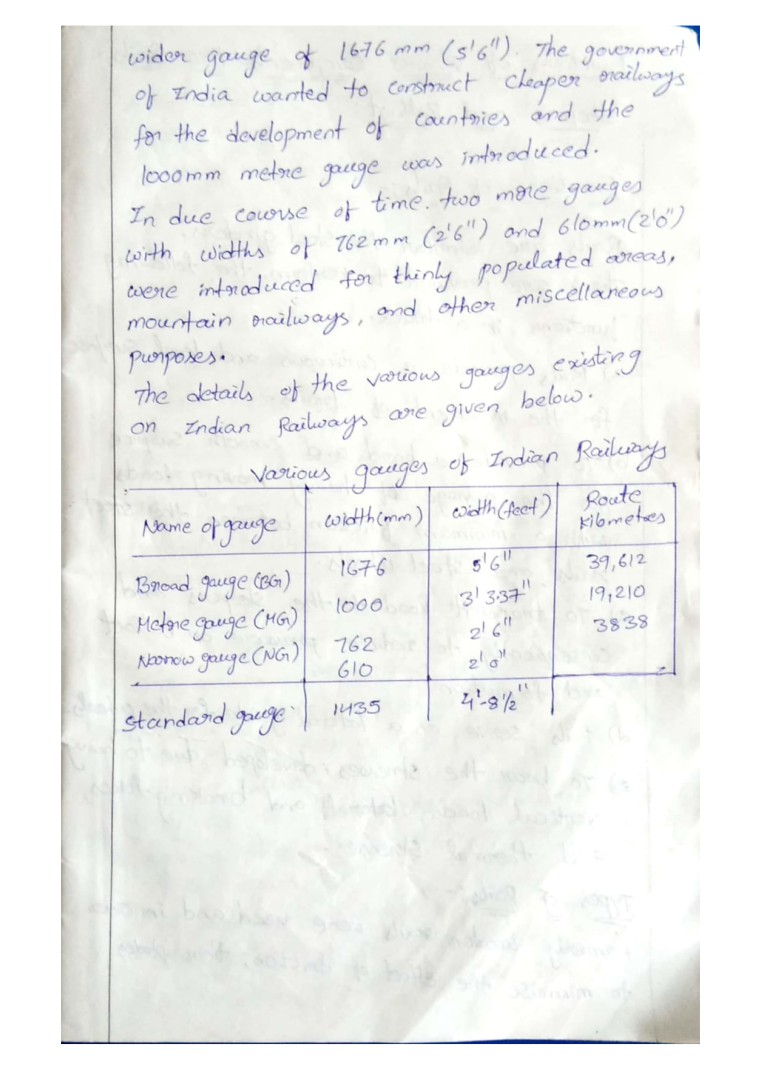 wider gauge of 1676 mm (5'6"). The government
of India wanted to construct cheaper railways
for the development of countries and the
1000mm metre gauge was introduced.
In due course of time. two more gauges
with widths of 762 mm (2'6") and 610mm (2'0")
were introduced for thinly populated areas,
mountain railways, and other miscellaneous
purposes.
The details of the various gauges existing
on Indian Railways are given below.
Various gauges of Indian Railways
Name of gauge width(mm) width(feet) Route Kilometres
Broad gauge (BG) 1676 5'6" 39,612
Metre gauge (MG) 1000 3'3.37" 19,210
Narrow gauge (NG) 762 2'6" 3838
610 2'0"
Standard gauge 1435 4'-8 1/2"